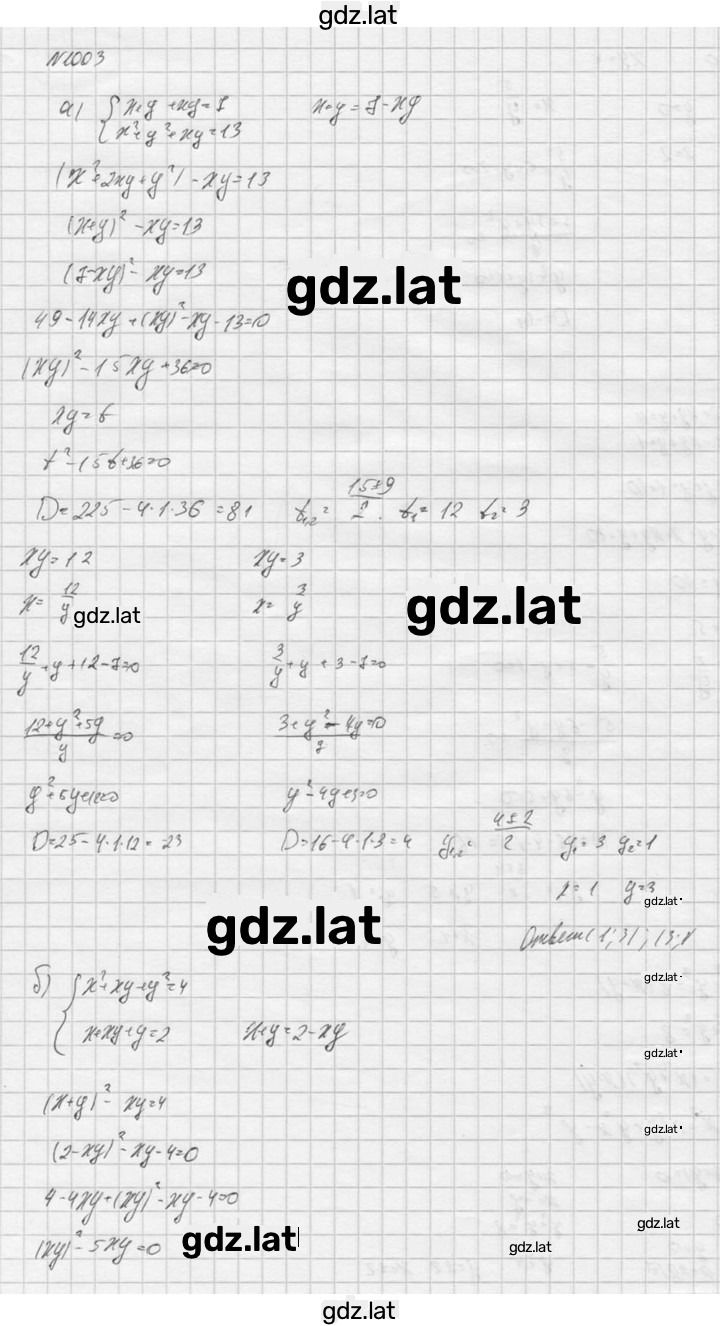 gdz.lat
№1003
а) { x+y+xy=7   x+y=7-xy
x²+y²+xy=13
(x²+2xy+y²)-xy=13
(x+y)²-xy=13
(7-xy)²-xy=13
gdz.lat
49-14xy+(xy)²-xy-13=0
(xy)²-15xy+36=0
xy=t
t²-15t+36=0
D=225-4·1·36=81   t₁,₂=(15±9)/2.   t₁=12   t₂=3
xy=12   xy=3
x=12/y   x=3/y
gdz.lat
gdz.lat
12/y+y+12-7=0   3/y+y+3-7=0
(12+y²+5y)/y=0   (3+y²-4y=0)/y
y²+5y+12=0   y²-4y+3=0
D=25-4·1·12=-23   D=16-4·1·3=4   y₁,₂=(4±2)/2   y₁=3   y₂=1
x=1   y=3
gdz.lat
gdz.lat
Ответ: (1;3); (3;1
б) { x²+xy+y²=4
gdz.lat
x+xy+y=2   x+y=2-xy
gdz.lat
(x+y)²-xy=4
gdz.lat
(2-xy)²-xy-4=0
4-4xy+(xy)²-xy-4=0
gdz.lat
(xy)²-5xy=0
gdz.lat
gdz.lat
gdz.lat